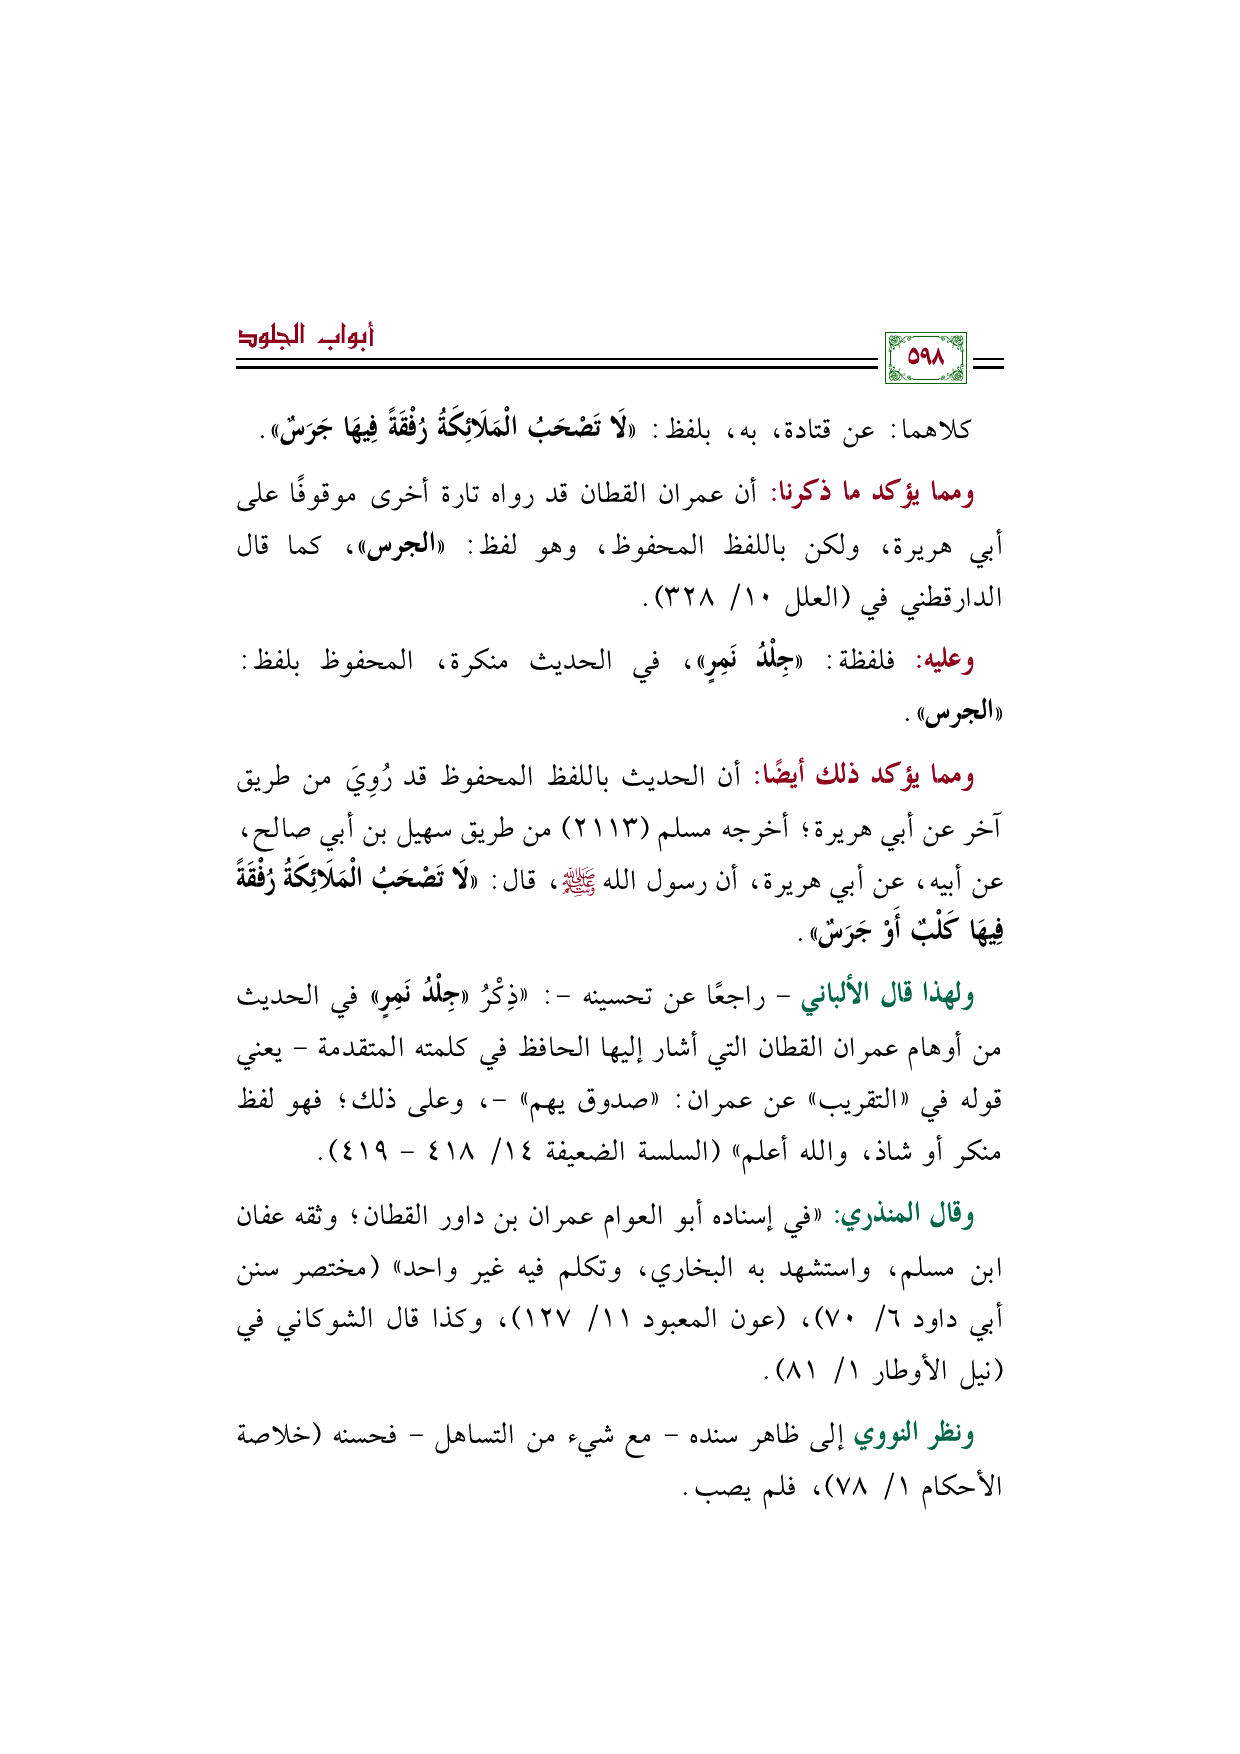 أبواب الجلود
٥٩٨
كلاهما: عن قتادة، به، بلفظ: «لَا تَصْحَبُ الْمَلَائِكَةُ رُفْقَةً فِيهَا جَرَسٌ».
ومما يؤكد ما ذكرنا: أن عمران القطان قد رواه تارة أخرى موقوفًا على
أبي هريرة، ولكن باللفظ المحفوظ، وهو لفظ: «الجرس»، كما قال
الدارقطني في (العلل ١٠/ ٣٢٨).
وعليه: فلفظة: «جِلْدُ نَمِرٍ»، في الحديث منكرة، المحفوظ بلفظ:
«الجرس».
ومما يؤكد ذلك أيضًا: أن الحديث باللفظ المحفوظ قد رُوِيَ من طريق
آخر عن أبي هريرة؛ أخرجه مسلم (٢١١٣) من طريق سهيل بن أبي صالح،
عن أبيه، عن أبي هريرة، أن رسول الله ﷺ، قال: «لَا تَصْحَبُ الْمَلَائِكَةُ رُفْقَةً
فِيهَا كَلْبٌ أَوْ جَرَسٌ».
ولهذا قال الألباني – راجعًا عن تحسينه –: «ذِكْرُ «جِلْدُ نَمِرٍ» في الحديث
من أوهام عمران القطان التي أشار إليها الحافظ في كلمته المتقدمة – يعني
قوله في «التقريب» عن عمران: «صدوق يهم» –، وعلى ذلك؛ فهو لفظ
منكر أو شاذ، والله أعلم» (السلسة الضعيفة ١٤/ ٤١٨ – ٤١٩).
وقال المنذري: «في إسناده أبو العوام عمران بن داور القطان؛ وثقه عفان
ابن مسلم، واستشهد به البخاري، وتكلم فيه غير واحد» (مختصر سنن
أبي داود ٦/ ٧٠)، (عون المعبود ١١/ ١٢٧)، وكذا قال الشوكاني في
(نيل الأوطار ١/ ٨١).
ونظر النووي إلى ظاهر سنده – مع شيء من التساهل – فحسنه (خلاصة
الأحكام ١/ ٧٨)، فلم يصب.